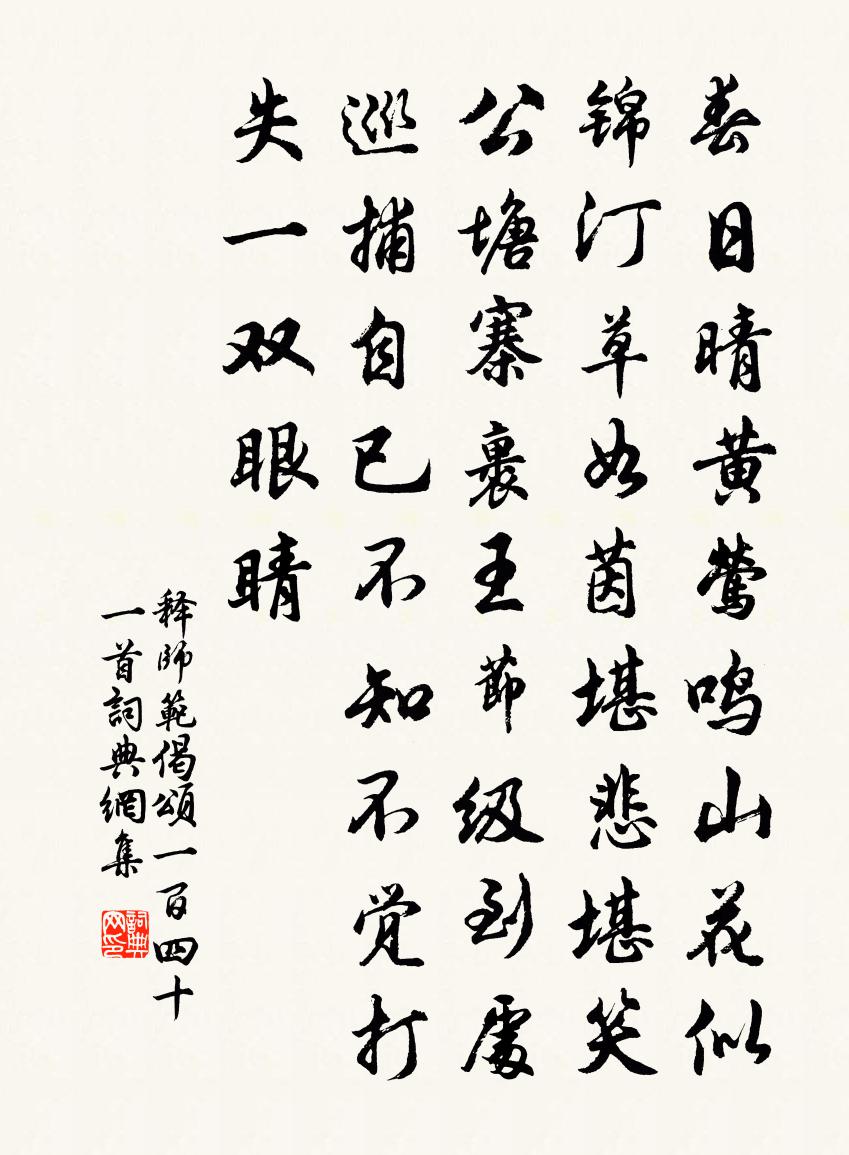 春日晴黄莺鸣山花似
锦汀草如茵堪悲堪笑
公塘寨裹王節级到處
巡捕自已不知不觉打
失一双眼睛
释師範偈頌一百四十
一首詞典網集
詞典网印